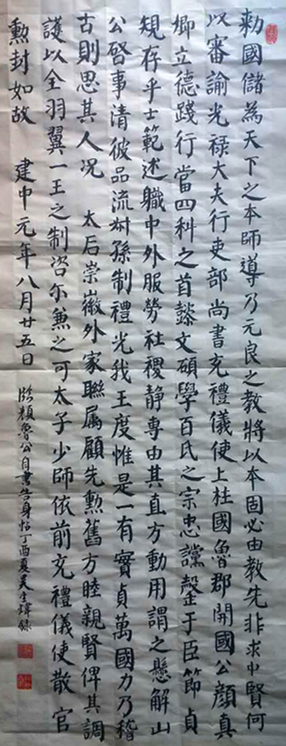 勅國儲為天下之本師導乃元良之教將以本固必由教先非求中賢何
以審諭光禄大夫行吏部尚書充禮儀使上柱國魯郡開國公顏真
卿立德踐行當四科之首懿文碩學百氏之宗忠讜罄于臣節貞
規存乎士範述職中外服勞社稷静專由其直方動用謂之懸解山
公啓事清彼品流叔孫制禮光我王度惟是一有實貞萬國力乃稽
古則思其人况 太后崇徽外家聯属顧先勲舊方睦親賢俾其調
護以全羽翼一王之制咨尔兼之可太子少師依前充禮儀使散官
勲封如故 建中元年八月廿五日 臨顏魯公自書告身帖丁酉夏